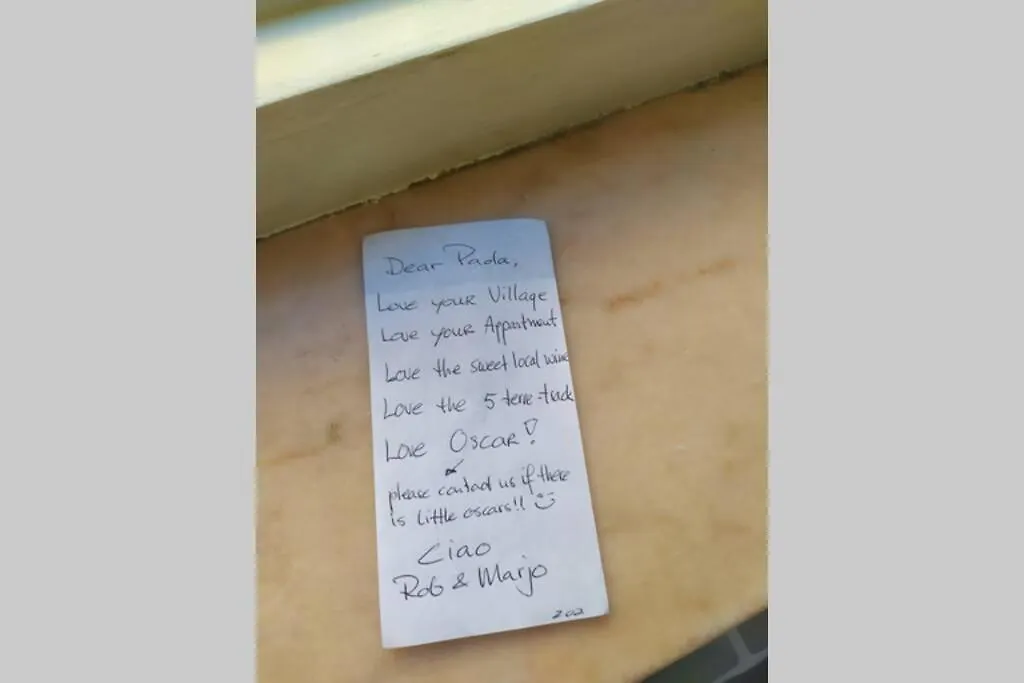 Dear Paola,
Love your Village
Love your Appartment
Love the sweet local wine
Love the 5 terre-track
Love Oscar!
please contact us if there
is little oscars!!
Ciao
Rob & Marjo